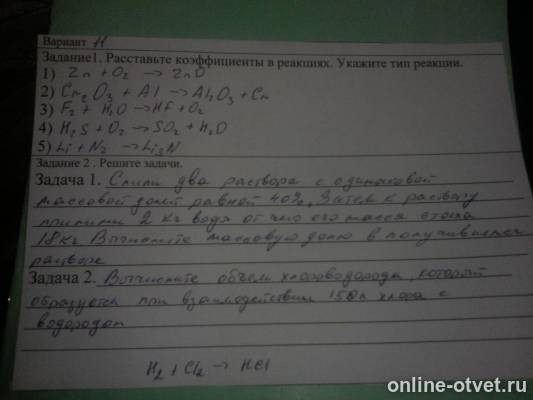 Вариант Н
Задание1. Расставьте коэффициенты в реакциях. Укажите тип реакции.
1) Zn + O₂ → ZnO
2) Cr₂O₃ + Al → Al₂O₃ + Cr
3) F₂ + H₂O → HF + O₂
4) H₂S + O₂ → SO₂ + H₂O
5) Li + N₂ → Li₃N
Задание 2 . Решите задачи.
Задача 1. Слили два раствора с одинаковой
массовой долей равной 40%. Затем к раствору
прилили 2 кг воды от чего его масса стала
18кг. Вычислите массовую долю в получившемся
растворе
Задача 2. Вычислите объем хлороводорода, который
образуется при взаимодействии 150л хлора с
водородом
H₂ + Cl₂ → HCl
online-otvet.ru